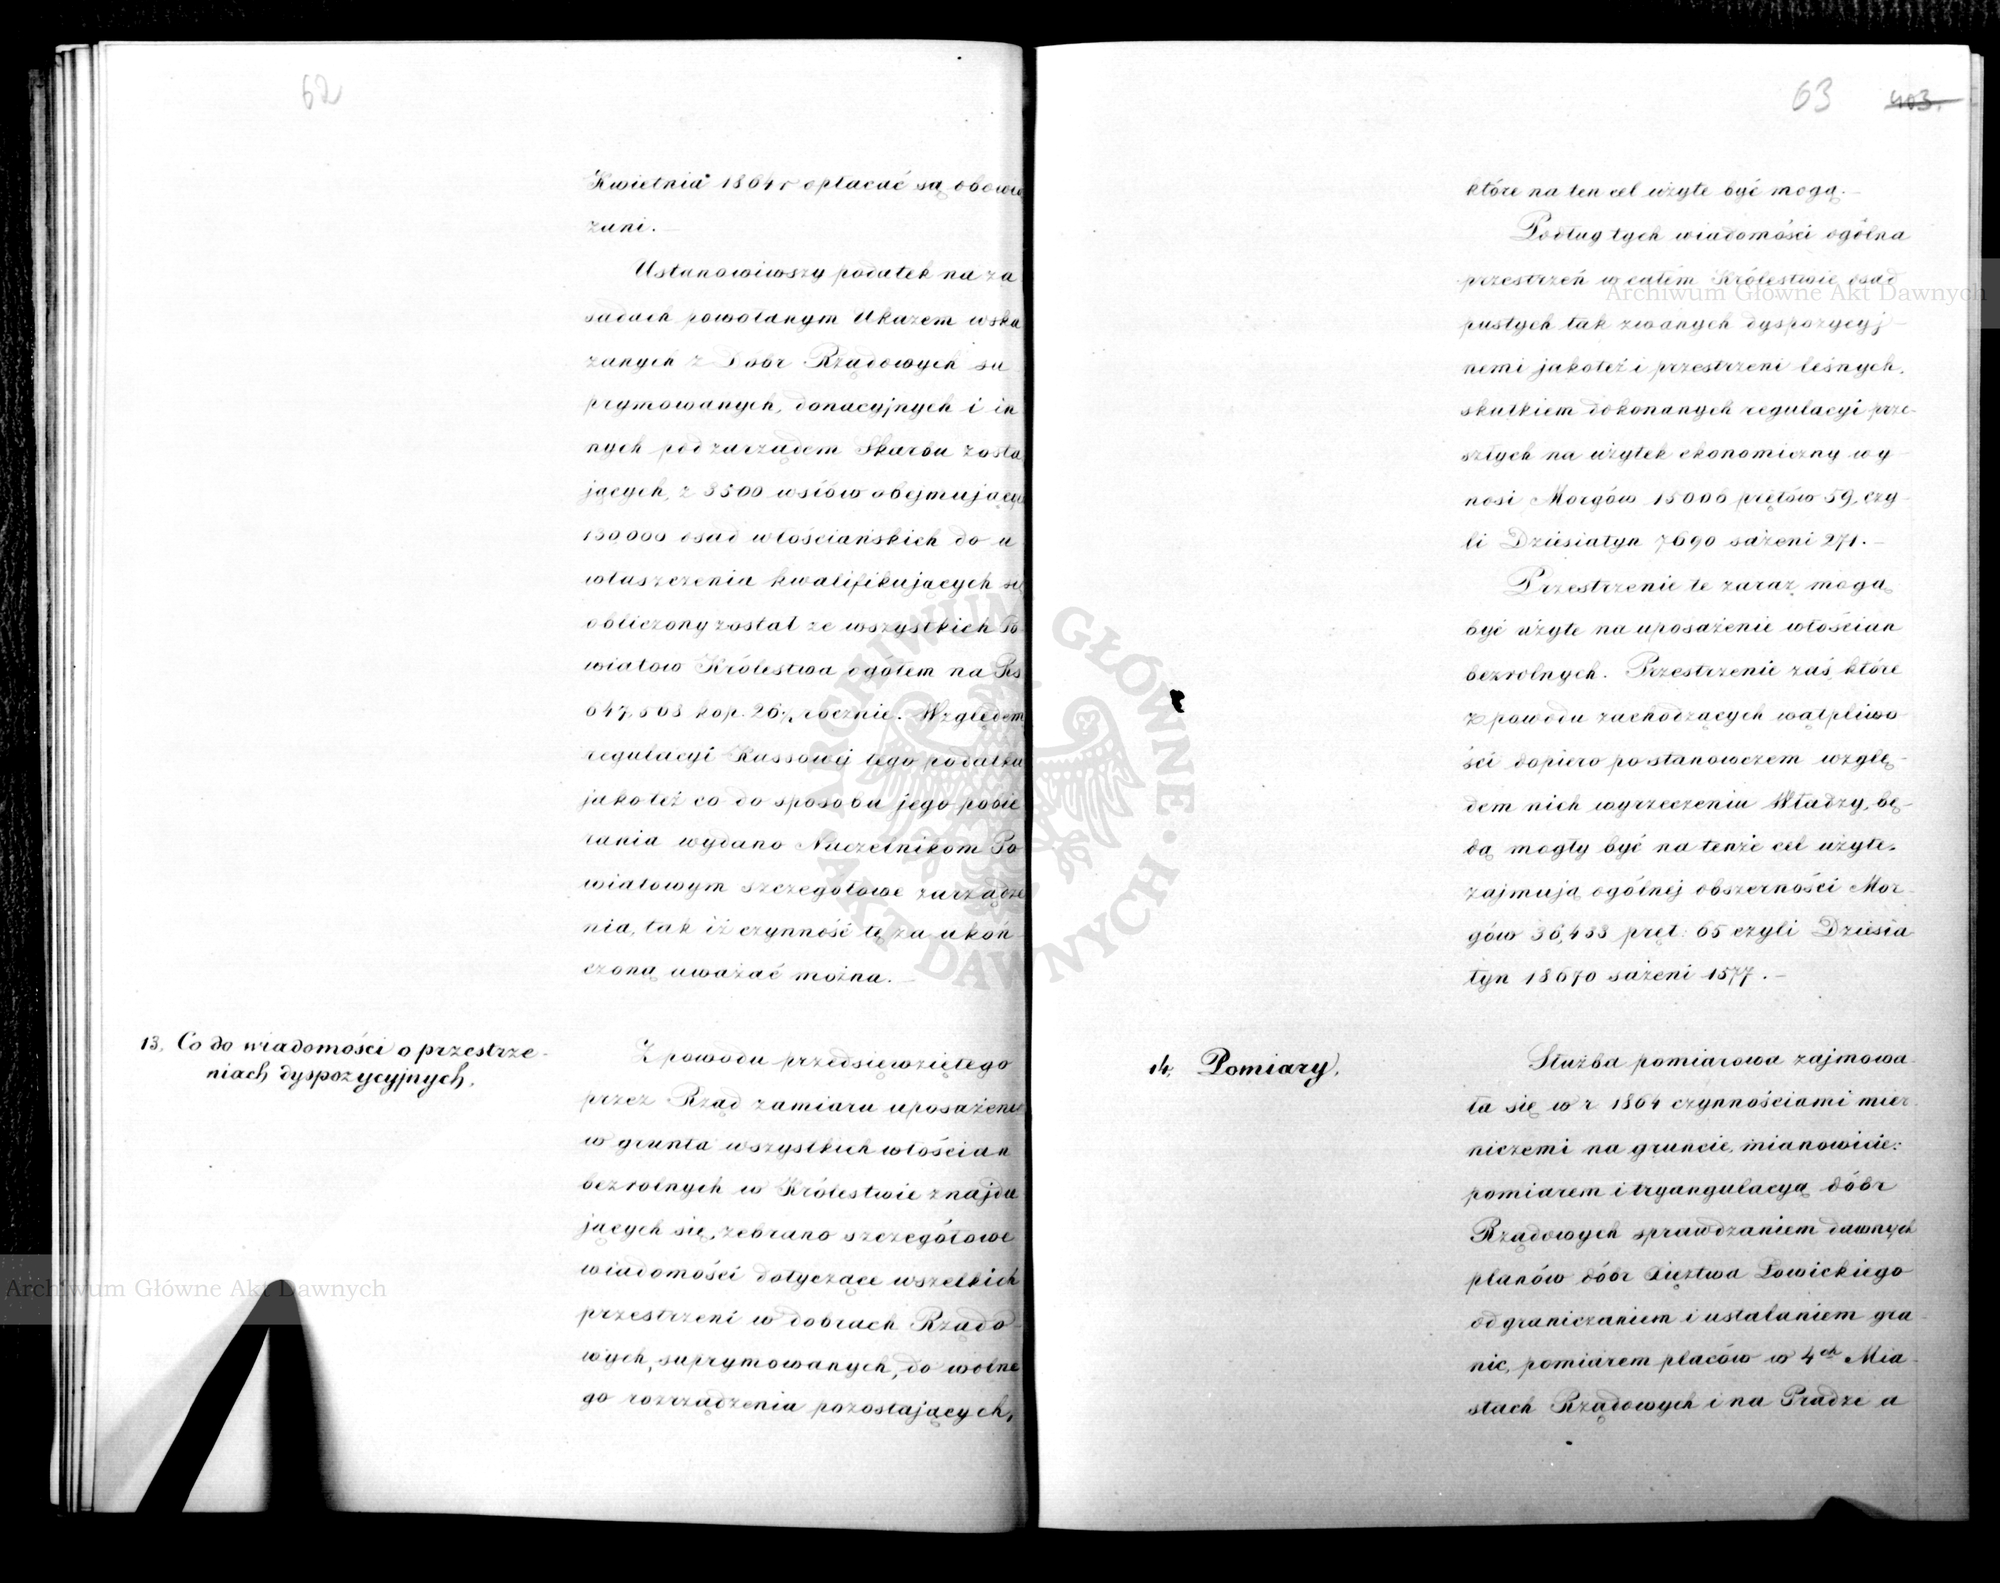 62
Kwietnia 1864 r opłacać są obowią
zani. —
Ustanowiwszy podatek na za
sadach powołanym Ukazem wska
zanych z Dobr Rządowych su
prymowanych, donacyjnych i in
nych pod zarządem Skarbu zosta
jących, z 3500 wsiów obejmujących
130,000 osad włościańskich do u
właszczenia kwalifikujących się
obliczony został ze wszystkich Po
wiatow Królestwa ogółem na Rs
647,508 kop. 26½ rocznie. Względem
regulacyi Kassowej tego podatku
jakoteż co do sposobu jego pobie
rania wydano Naczelnikom Po
wiatowym szczegołowe zarządze
nia, tak iż czynność tę za ukoń
czoną uważać można. —
13, Co do wiadomości o przestrze-
niach dyspozycyjnych.
Z powodu przedsięwziętego
przez Rząd zamiaru uposażenia
w grunta wszystkich włościan
bezrolnych w Królestwie znajdu
jących się, zebrano szczegółowe
wiadomości dotyczące wszelkich
przestrzeni w dobrach Rządo-
wych, suprymowanych, do wolne
go rozrządzenia pozostających,
63 403.
które na ten cel użyte być mogą. —
Podług tych wiadomości ogólna
przestrzeń w całem Królestwie osad
pustych tak zwanych dyspozycyj-
nemi jakoteż i przestrzeni leśnych,
skutkiem dokonanych regulacyi prze-
szłych na użytek ekonomiczny wy-
nosi Morgów 15006 prętów 59, czy-
li Dziesiatyn 7690 sażeni 271. —
Przestrzenie te zaraz mogą
być użyte na uposażenie włościan
bezrolnych. Przestrzenie zaś, które
z powodu zachodzących wątpliwo-
ści dopiero po stanowczem wzglę-
dem nich wyrzeczeniu Władzy, bę-
dą mogły być na tenże cel użyte,
zajmują ogólnej obszerności Mor-
gów 36,433 pręt: 65 czyli Dziesia
tyn 18670 sażeni 1577. —
14, Pomiary.
Służba pomiarowa zajmowa-
ła się w r 1864 czynnościami mier
niczemi na gruncie, mianowicie:
pomiarem i tryangulacyą dóbr
Rządowych sprawdzaniem dawnych
planów dóbr Xięztwa Łowickiego
odgraniczaniem i ustalaniem gra-
nic, pomiarem placów w 4ch Mia-
stach Rządowych i na Pradze a
Archiwum Główne Akt Dawnych
ARCHIWUM GŁÓWNE AKT DAWNYCH
Archiwum Główne Akt Dawnych